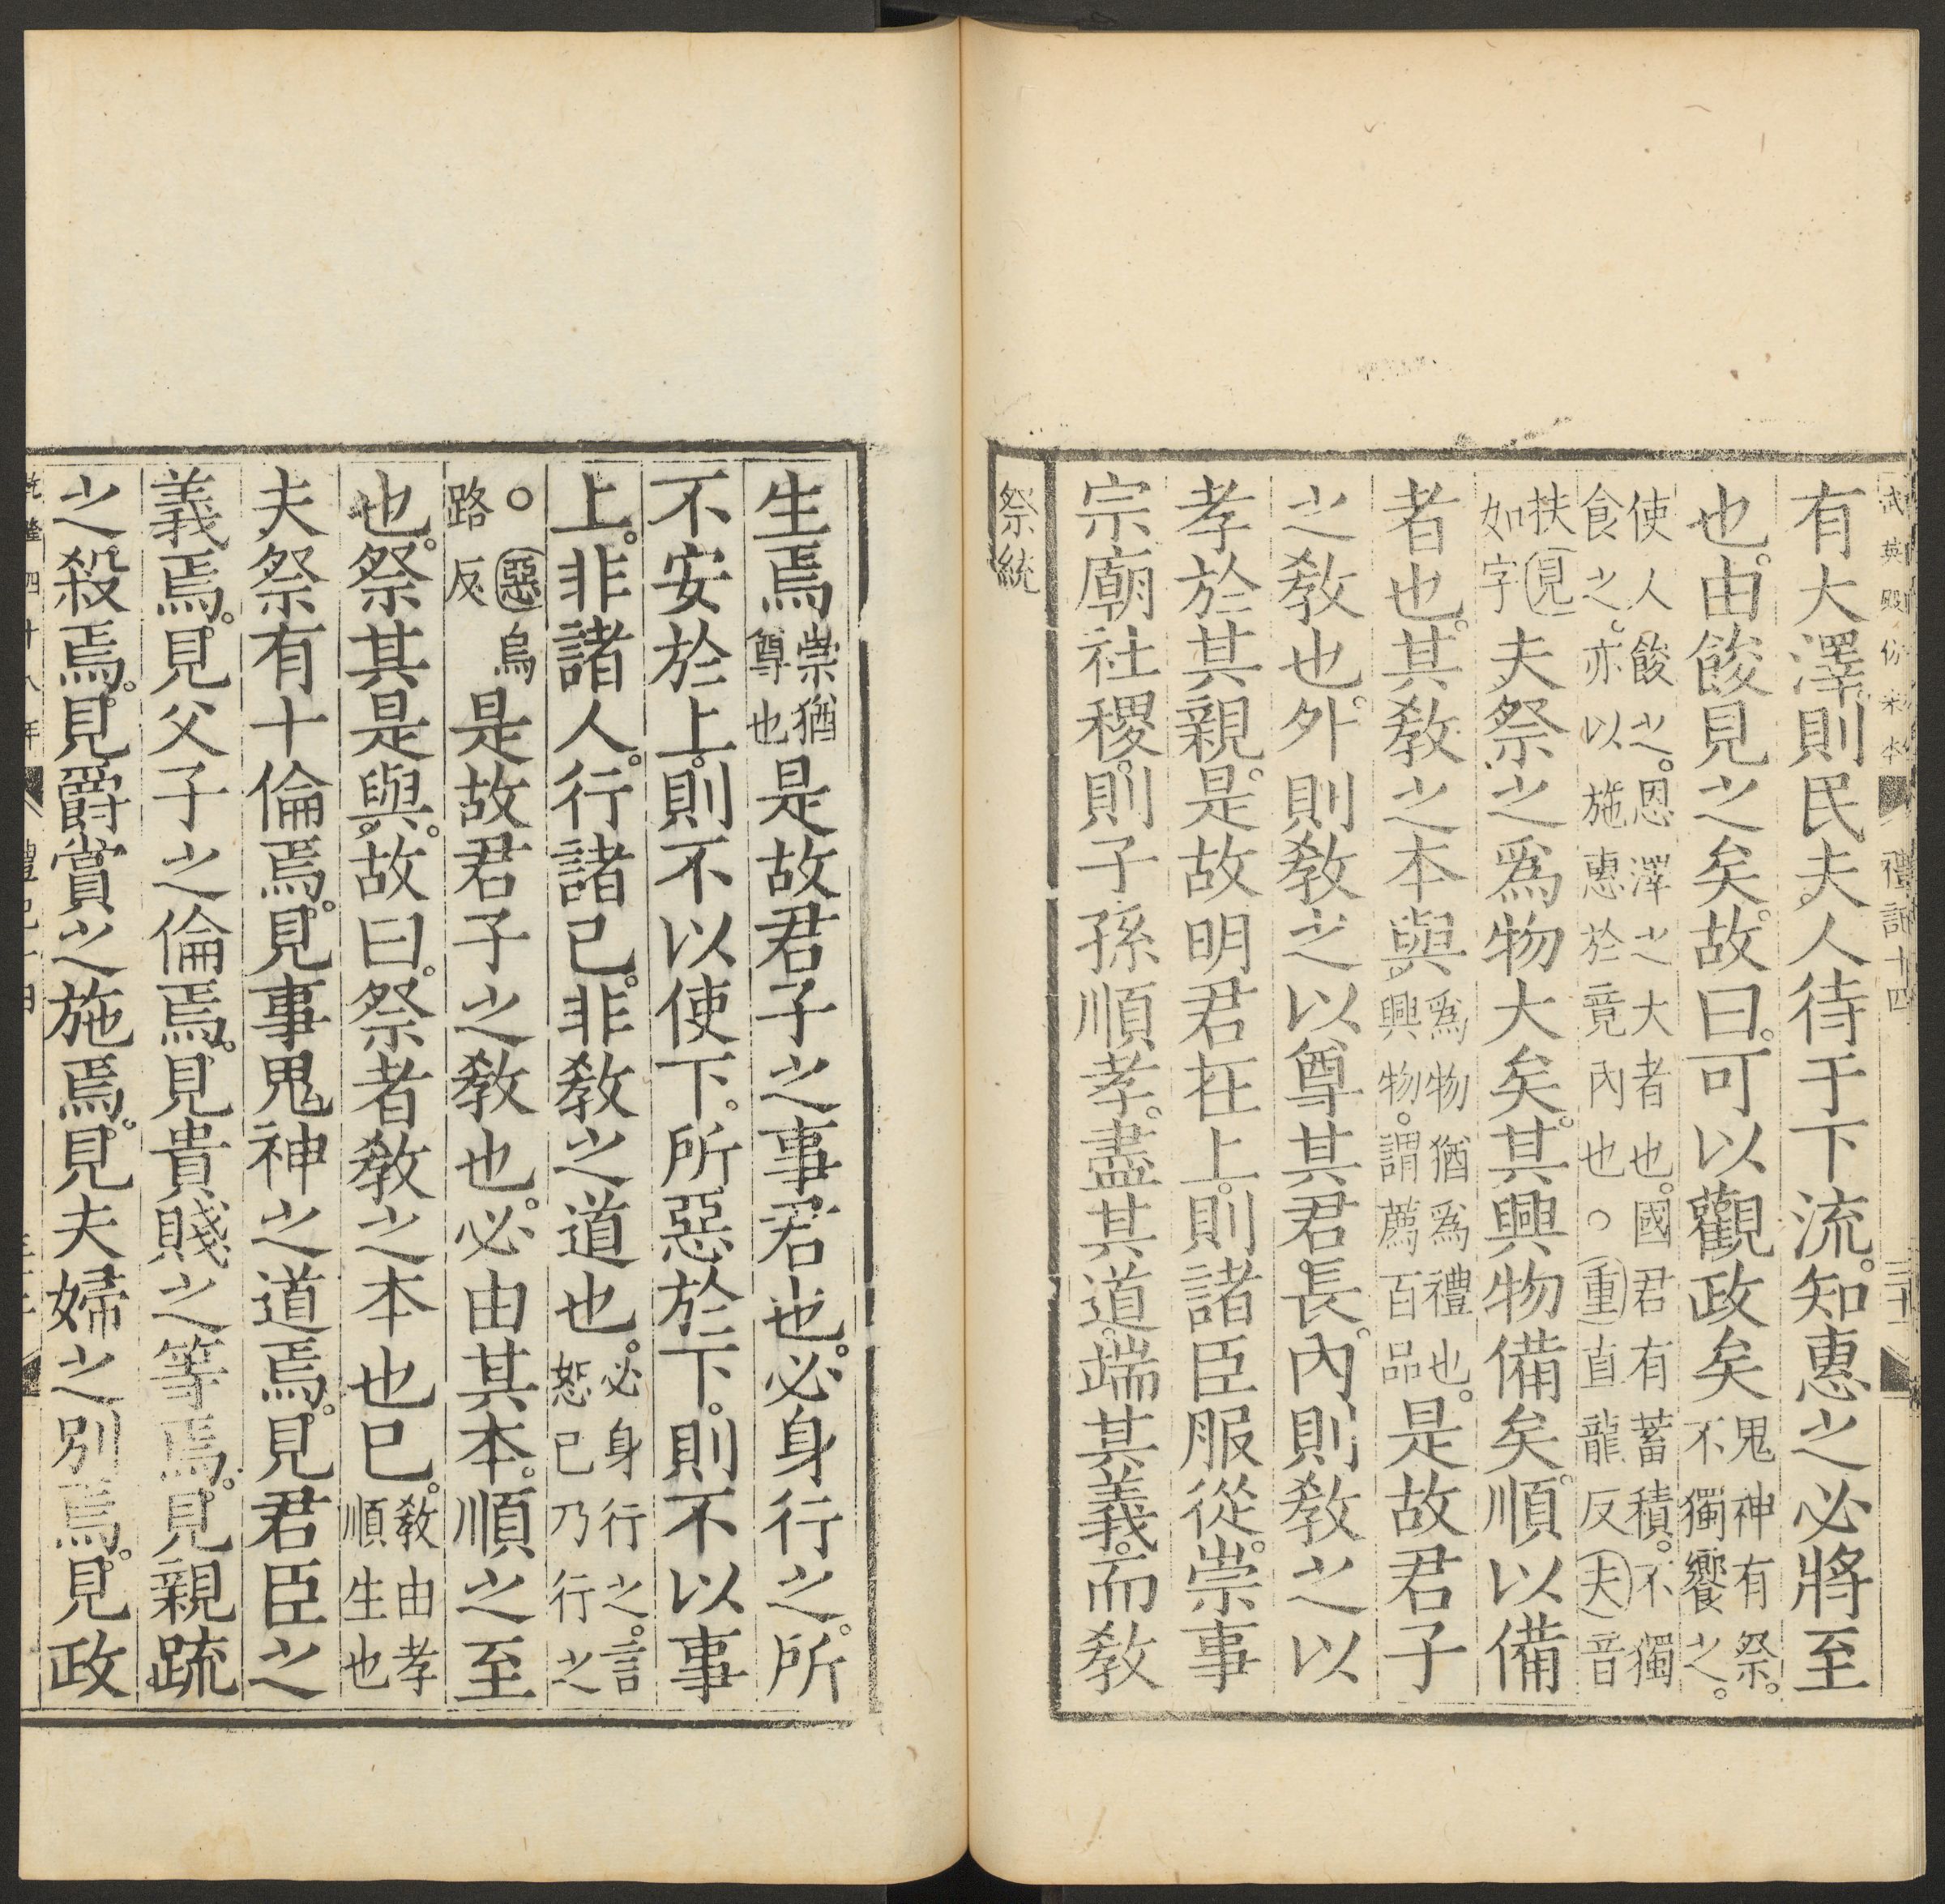 武英殿仿宋本 禮記十四
有大澤則民夫人待于下流。知惠之必將至
也。由餕見之矣。故曰。可以觀政矣鬼神有祭。不獨饗之。
使人餕之。恩澤之大者也。國君有蓄積。不獨食之。亦以施惠於竟內也○重直龍反夫音
扶見如字夫祭之爲物大矣。其興物備矣。順以備
者也。其敎之本與。爲物猶爲禮也。興物。謂薦百品是故君子
之敎也。外則敎之以尊其君長。內則敎之以
孝於其親。是故明君在上。則諸臣服從。崇事
宗廟社稷。則子孫順孝。盡其道。端其義。而敎
祭統
生焉崇猶尊也是故君子之事君也。必身行之。所
不安於上。則不以使下。所惡於下。則不以事
上。非諸人。行諸己。非敎之道也。必身行之。言恕己乃行之
○惡烏路反是故君子之敎也。必由其本。順之至
也。祭其是與。故曰。祭者敎之本也已。敎由孝順生也
夫祭有十倫焉。見事鬼神之道焉。見君臣之
義焉。見父子之倫焉。見貴賤之等焉。見親疏
之殺焉。見爵賞之施焉。見夫婦之別焉。見政
乾隆四十八年